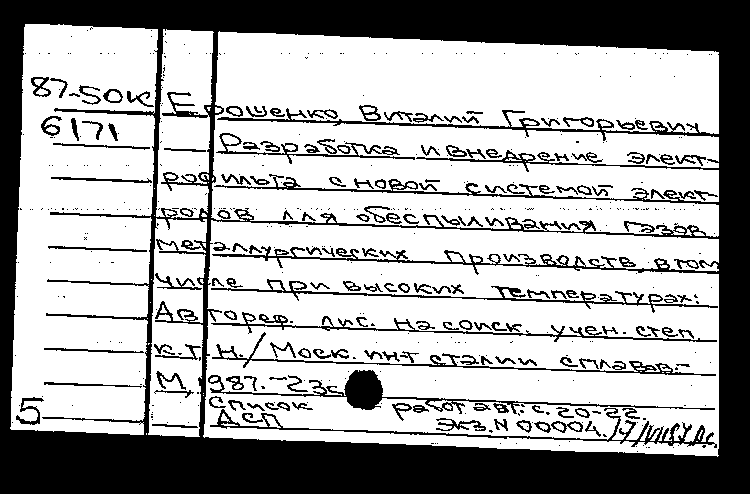 87-50к Ерошенко, Виталий Григорьевич
6171 Разработка и внедрение элект-
рофильтра с новой системой элект-
родов для обеспыливания газов
металлургических производств, в том
числе при высоких температурах:
Автореф. дис. на соиск. учен. степ.
к.т.н./Моск. ин-т стали и сплавов.-
М, 1987.-23с
Список работ авт.: с. 20-22.
5 ДСП экз. N 00004.